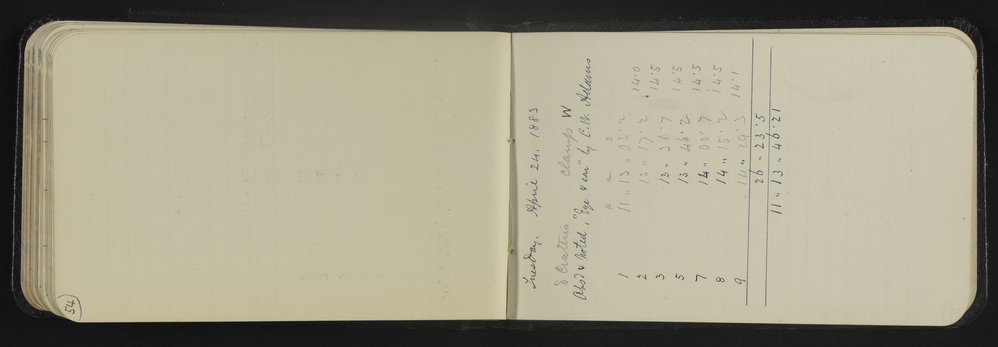 54
Tuesday. April 24. 1883
δ Crateris clamp W
Obsd & Noted, "Eye & ear" by C.W. Adams
H m s
1 11 " 13 " 03 . 2 14.0
2 13 " 17 . 2 14.5
3 13 " 31 . 7 14.5
5 13 " 46 . 2 14.5
7 14 " 00 . 7 14.5
8 14 " 15 . 2 14.1
9 14 " 29 . 3
26 " 23 . 5
11 " 13 " 46 . 21